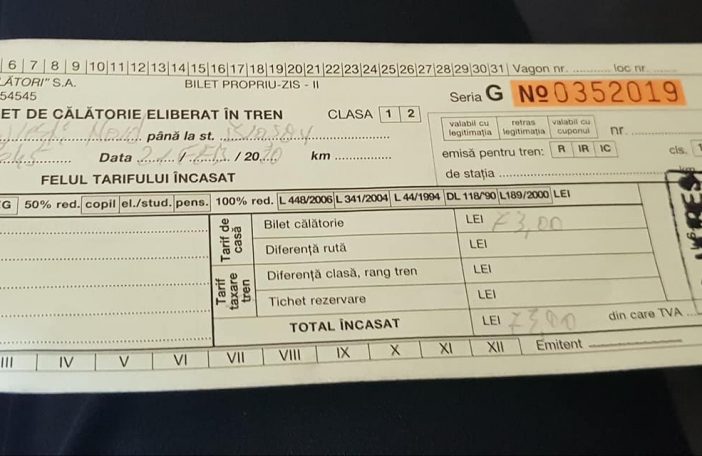 6 7 8 9 10 11 12 13 14 15 16 17 18 19 20 21 22 23 24 25 26 27 28 29 30 31 Vagon nr. ........... loc nr. .........
LĂTORI" S.A. BILET PROPRIU-ZIS - II
54545 Seria G Nº 0352019
ET DE CĂLĂTORIE ELIBERAT ÎN TREN CLASA 1 2
valabil cu legitimația retras legitimația valabil cu cuponul nr. ....
Nord până la st. Brașov
Data 21 FEB / 2020 km ............... emisă pentru tren: R IR IC cls. 1
FELUL TARIFULUI ÎNCASAT de stația
G 50% red. copil el./stud. pens. 100% red. L 448/2006 L 341/2004 L 44/1994 DL 118/'90 L189/2000 LEI
Tarif de casă Bilet călătorie LEI 73,00
Diferență rută LEI
Tarif taxare tren Diferență clasă, rang tren LEI
Tichet rezervare LEI
TOTAL ÎNCASAT LEI 73,00 din care TVA ...
III IV V VI VII VIII IX X XI XII Emitent